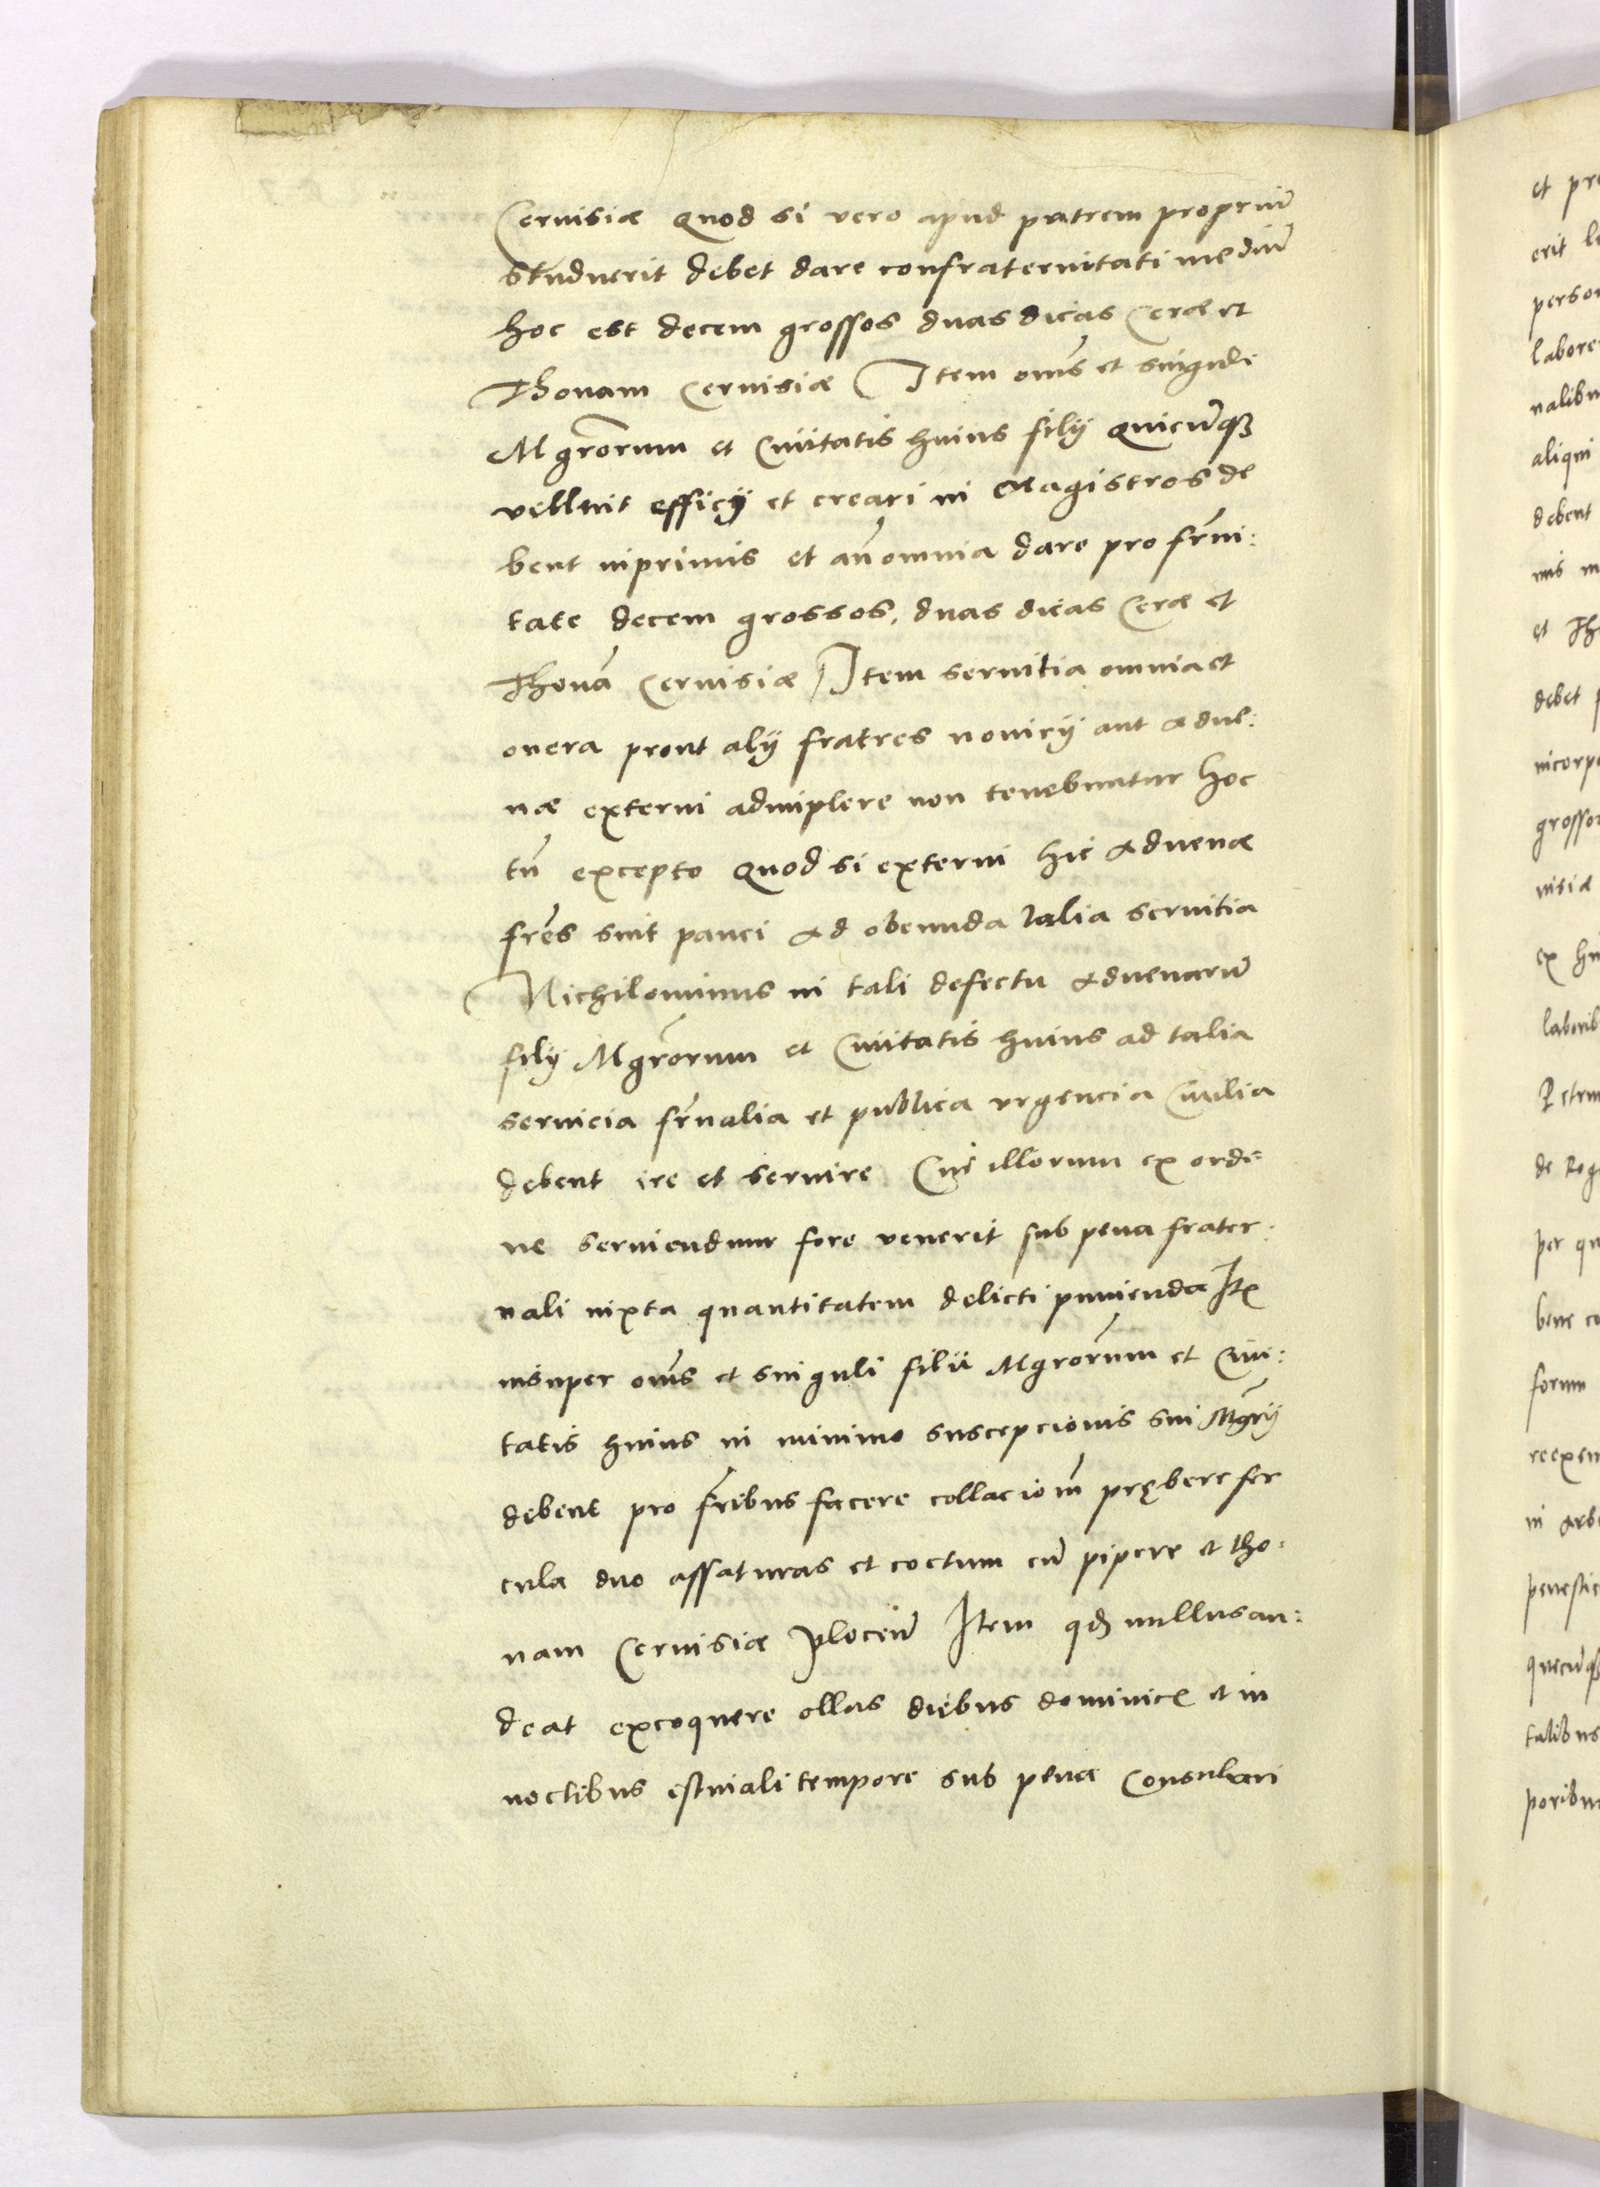 Ceruisiæ Quod si vero apud patrem propriū
studuerit debet dare confraternitati mediū
hoc est decem grossos duas dicas Ceræ et
Thonam Ceruisiæ Item oms et singuli
Mgrōrum et Ciuitatis huius filij Quicūqꝫ
vellint efficij et creari in Magistros de
bent inprimis et an̄ omnia dare pro frn̄i:
tate decem grossos, duas dicas Ceræ et
Thonā Ceruisiæ Item seruitia omnia et
onera prout alij fratres nouicij aut adue:
næ externi adimplere non tenebuntur hoc
tn̄ excepto Quod si externi hic aduenæ
frēs sint pauci ad obeunda talia seruitia
Nichilominus in tali defectu aduenarū
filij Mgrōrum et Ciuitatis huius ad talia
seruicia frn̄alia et publica vrgencia Ciuilia
debent ire et seruire Cui illorum ex ordi-
ne seruiendum fore venerit sub pena frater:
nali iuxta quantitatem delicti punienda Itē
insuper oms et singuli filii Mgrōrum et Ciui:
tatis huius in minimo suscepcionis sui Mgrij
debent pro fribus facere collacionē prębere fer
cula duo assaturas et coctum cū pipere et tho:
nam Ceruisiæ Plocen̄ Item qđ nullus au:
deat excoquere ollas diebus dominicę et in
noctibus estiuali tempore sub pena Consulari
et
erit
labore
aliqui
debent
et
debet
ex
de
per
bene
in